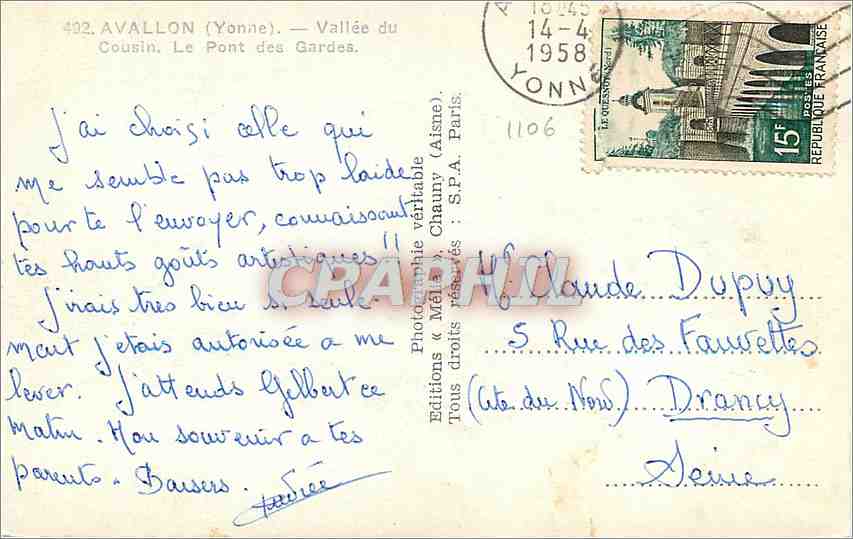 492. AVALLON (Yonne). — Vallée du
Cousin. Le Pont des Gardes.
J'ai choisi celle qui
me semble pas trop laide
pour te l'envoyer, connaissant
tes hauts goûts artistiques !!
J'irais très bien si seule-
ment j'étais autorisée a me
lever. J'attends Gilbert ce
matin. Mon souvenir a tes
parents. Baisers.
Photographie véritable
Editions « Mélia », Chauny (Aisne).
Tous droits réservés : S.P.A. Paris.
18 45
14-4
1958
YONNE
1106
LE QUESNOY (Nord)
15F
POSTES
REPUBLIQUE FRANÇAISE
CPARAMA
Claude Dupuy
5 Rue des Fauvettes
(Cité du Nord) Drancy
Seine